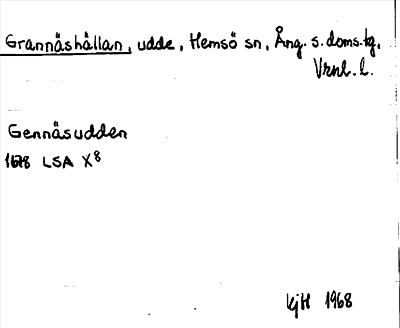 Grannäshällan, udde, Hemsö sn, Ång. s. doms.tg,
Vrnl. l.
Gennäsudden
1678 LSA X8
KjH 1968